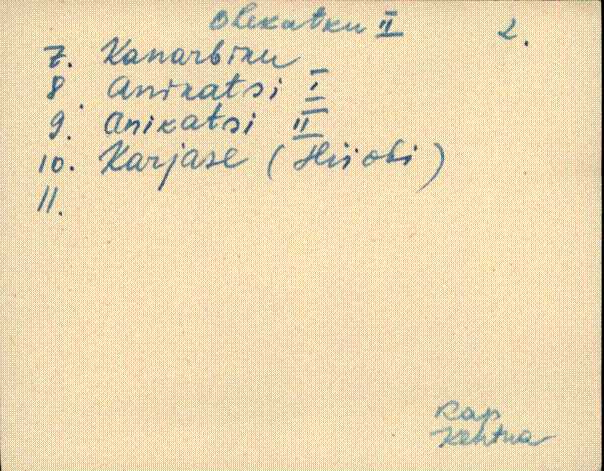 Olekatku II 2.
7. Kanarbiku
8. Anikatsi I
9. Anikatsi II
10. Karjase (Hiiobi)
11.
Rap
Kehtna